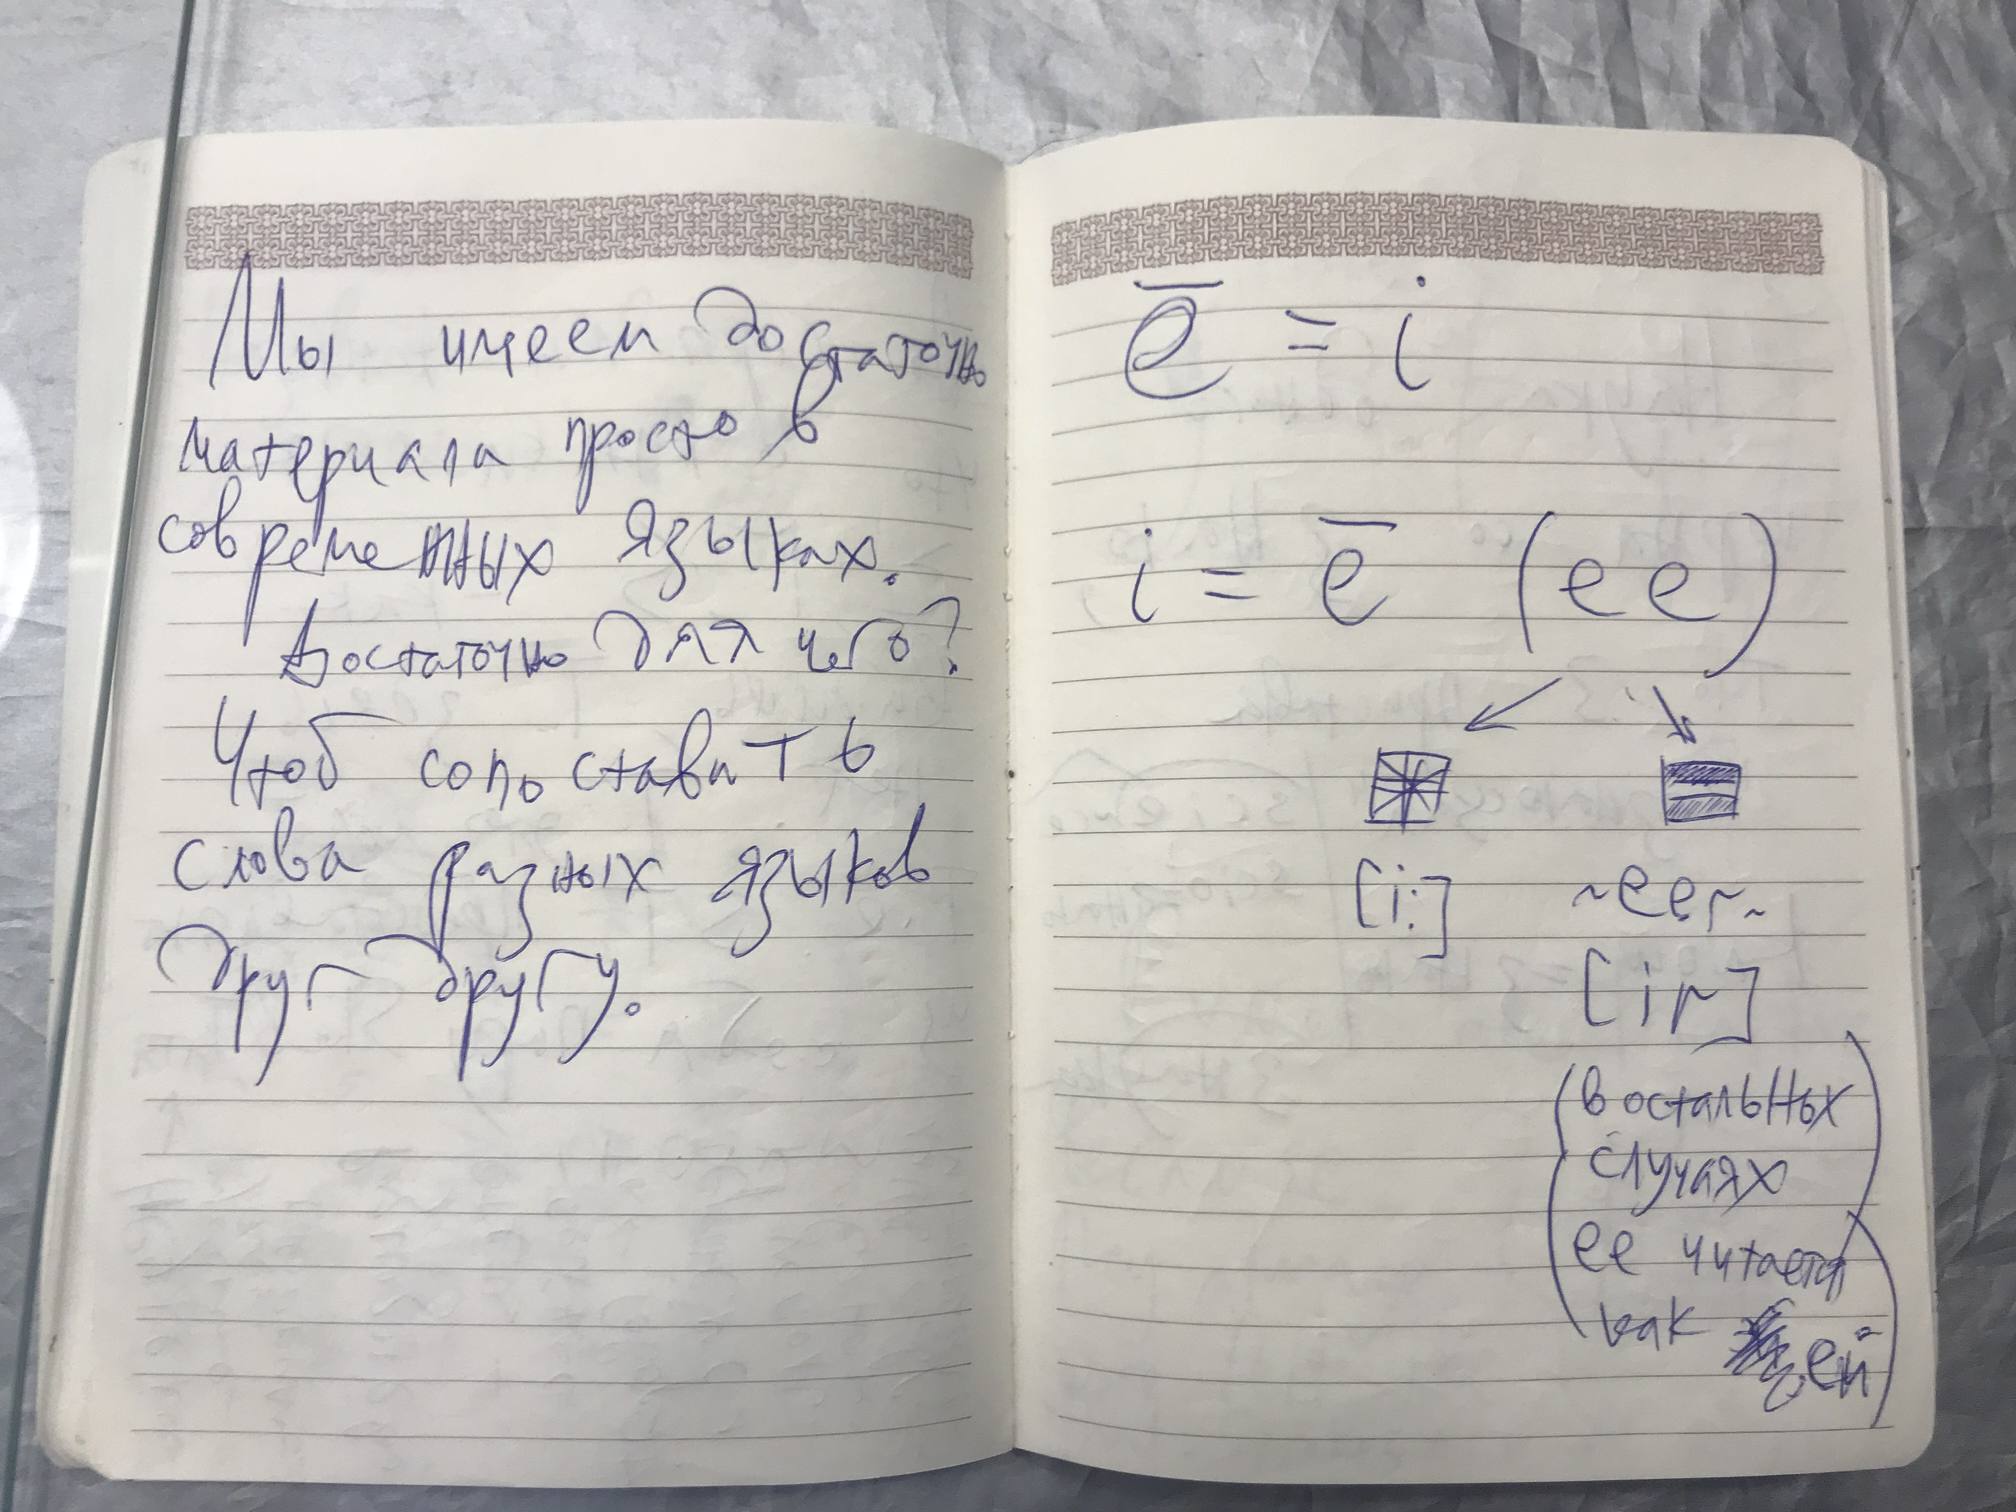 Мы имеем достаточно
материала просто в
современных языках.
Достаточно для чего?
Чтоб сопоставить
слова разных языков
друг другу.
ē = i
i = ē (ee)
[i:] ~eer~
[ir]
(в остальных
случаях
ee читается
как ей)